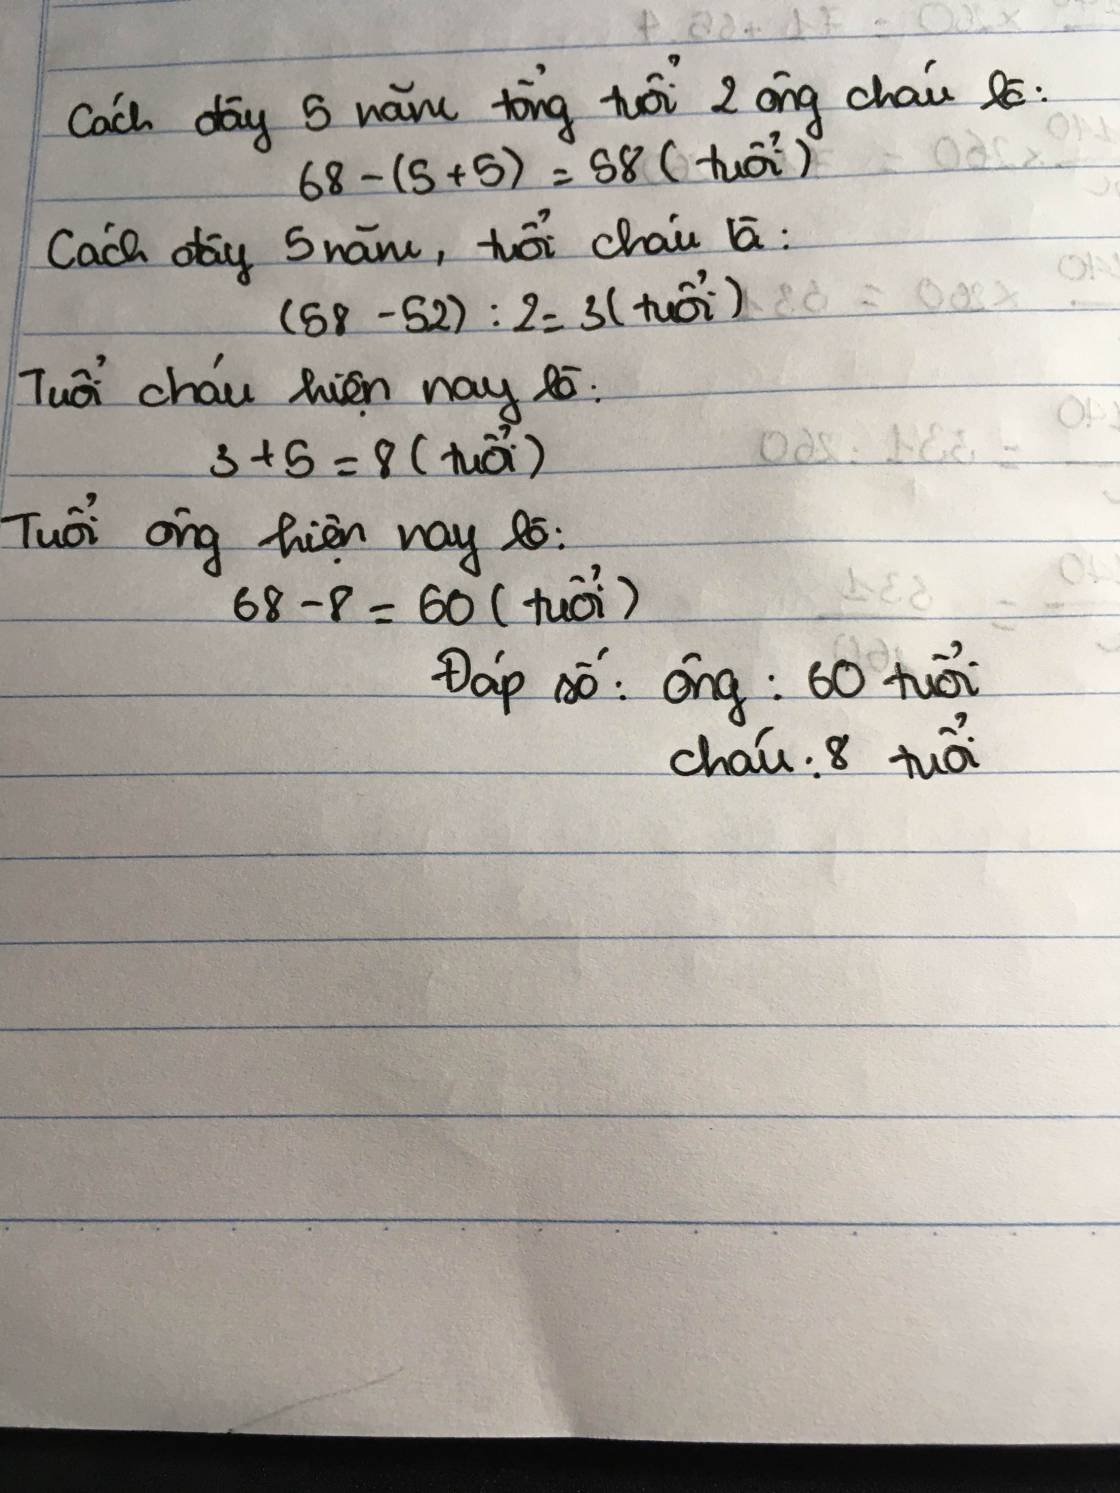 Cách đây 5 năm tổng tuổi 2 ông cháu là:
68 - (5 + 5) = 58 ( tuổi )
Cách đây 5 năm, tuổi cháu là :
(58 - 52) : 2 = 3 ( tuổi )
Tuổi cháu hiện nay là:
3 + 5 = 8 ( tuổi )
Tuổi ông hiện nay là:
68 - 8 = 60 ( tuổi )
Đáp số : ông : 60 tuổi
cháu : 8 tuổi